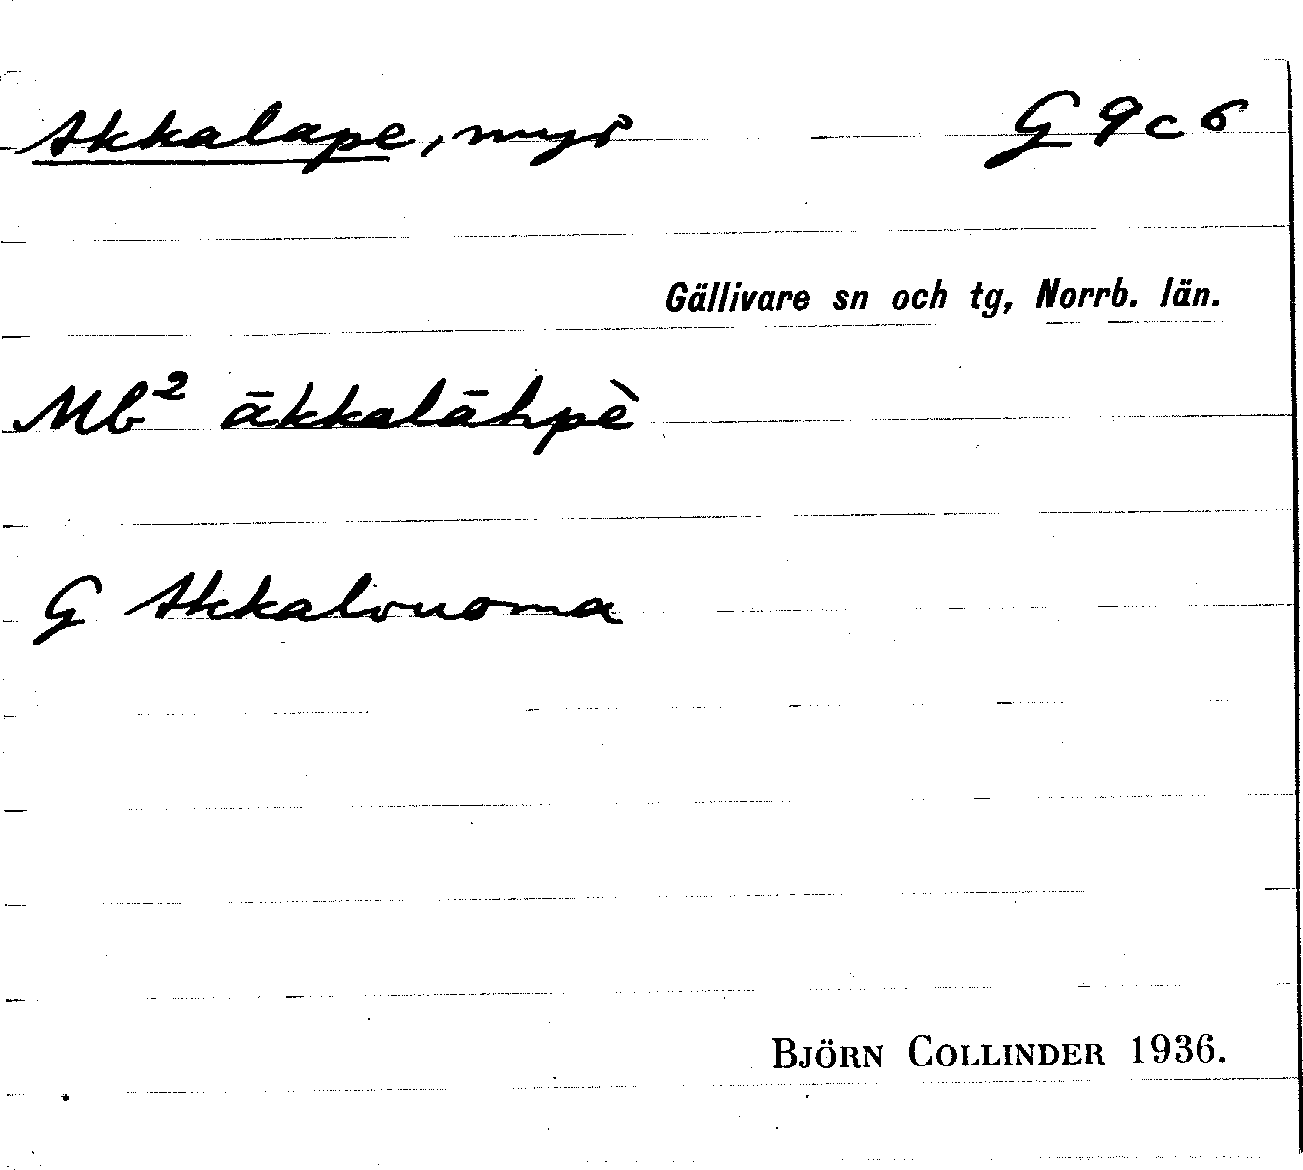 Akkalape, myr G 9c6
Gällivare sn och tg, Norrb. län.
Mb² ākkalāhpè
G Akkalvuoma
BJÖRN COLLINDER 1936.